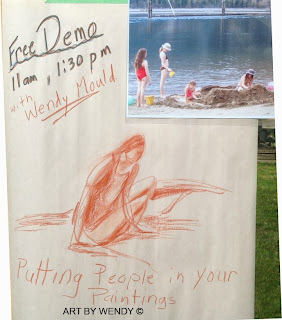 Free Demo
11am, 1:30pm
with Wendy Mould
Putting People in your
Paintings
ART BY WENDY ©